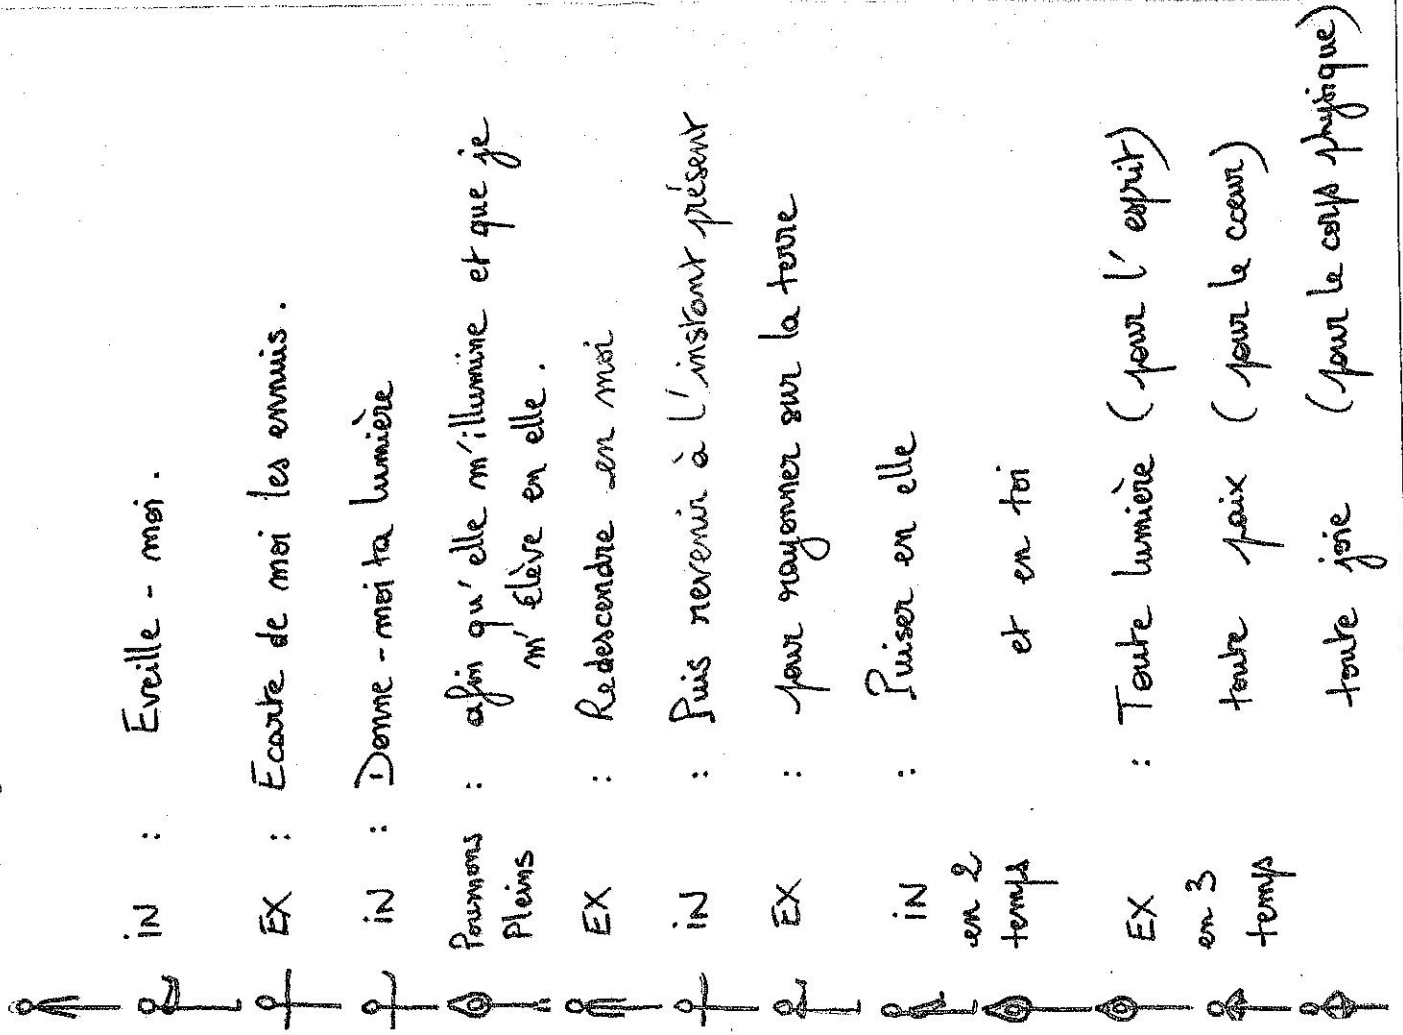 iN : Eveille - moi.
EX : Ecarte de moi les ennuis.
iN : Donne - moi ta lumière
Poumons Pleins : afin qu'elle m'illumine et que je
m'élève en elle.
EX : Redescendre en moi
iN : Puis revenir à l'instant présent
EX : pour rayonner sur la terre
iN : Puiser en elle
en 2
temps et en toi
EX : Toute lumière (pour l'esprit)
en 3 toute paix (pour le cœur)
temps toute joie (pour le corps physique)